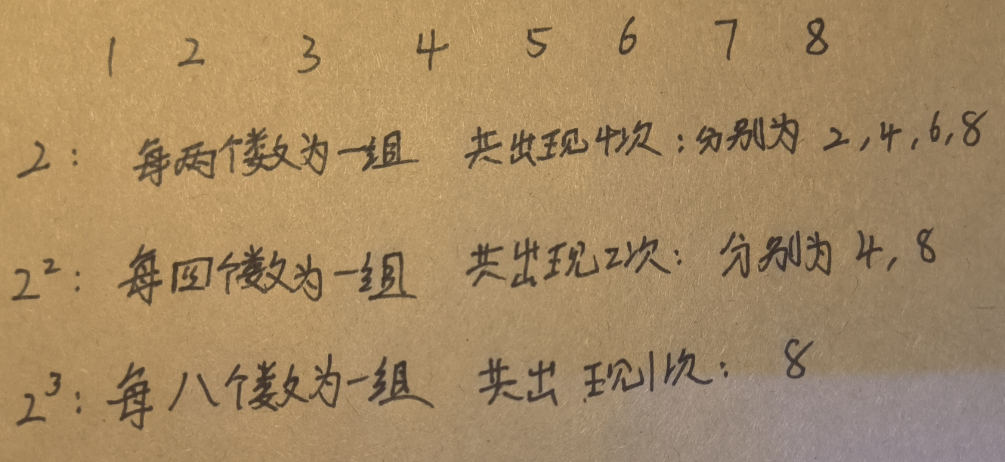 1 2 3 4 5 6 7 8
2: 每两个数为一组 共出现4次:分别为 2,4,6,8
2²: 每四个数为一组 共出现2次: 分别为 4,8
2³: 每八个数为一组 共出现1次: 8